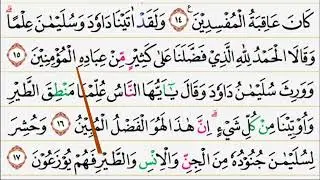 كَانَ عَاقِبَةُ الْمُفْسِدِيْنَ ࣖ ١٤ وَلَقَدْ اٰتَيْنَا دَاوٗدَ وَسُلَيْمٰنَ عِلْمًاۗ
وَقَالَا الْحَمْدُ لِلّٰهِ الَّذِيْ فَضَّلَنَا عَلٰى كَثِيْرٍ مِّنْ عِبَادِهِ الْمُؤْمِنِيْنَ ١٥
وَوَرِثَ سُلَيْمٰنُ دَاوٗدَ وَقَالَ يٰٓاَيُّهَا النَّاسُ عُلِّمْنَا مَنْطِقَ الطَّيْرِ
وَاُوْتِيْنَا مِنْ كُلِّ شَيْءٍۗ اِنَّ هٰذَا لَهُوَ الْفَضْلُ الْمُبِيْنُ ١٦ وَحُشِرَ
لِسُلَيْمٰنَ جُنُوْدُهٗ مِنَ الْجِنِّ وَالْاِنْسِ وَالطَّيْرِ فَهُمْ يُوْزَعُوْنَ ١٧